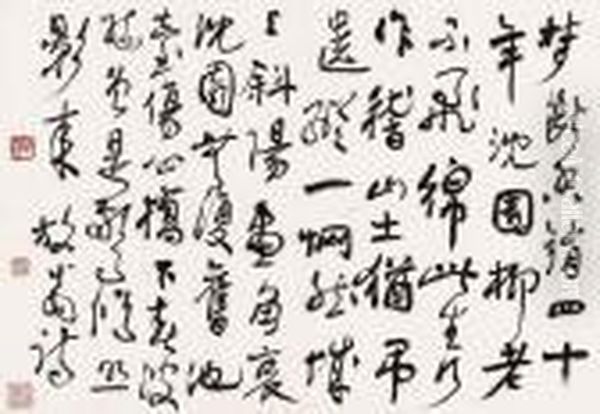 梦斷香消四十
年沈園柳老
不飛綿此生行
作稽山土猶吊
遺蹤一惘然城
上斜陽畫角哀
沈園無復舊池
臺傷心橋下春波
綠曾是驚鴻照
影來 放翁詩